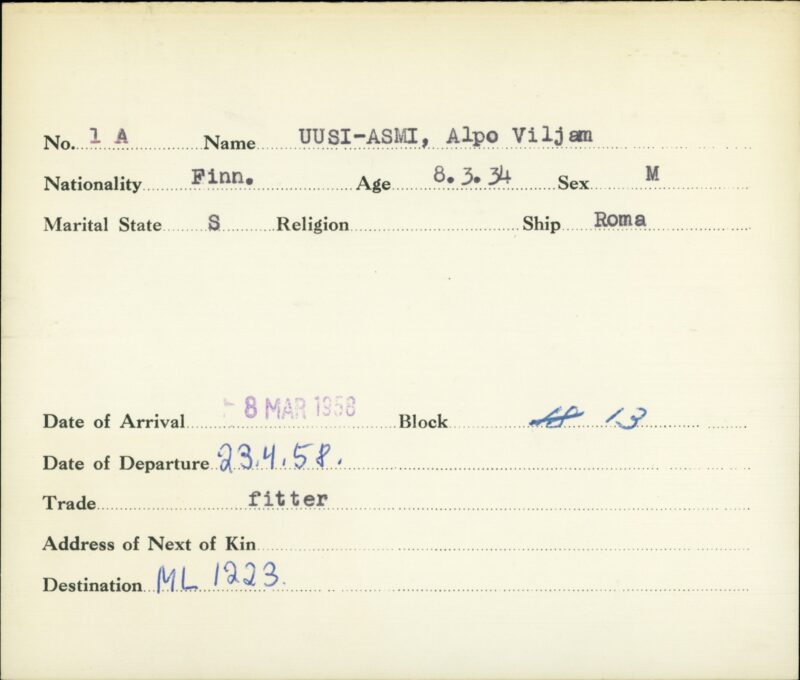 No. 1 A Name UUSI-ASMI, Alpo Viljam
Nationality Finn. Age 8.3.34 Sex M
Marital State S Religion Ship Roma
Date of Arrival - 8 MAR 1958 Block 18 13
Date of Departure 23.4.58.
Trade fitter
Address of Next of Kin
Destination ML 1223.